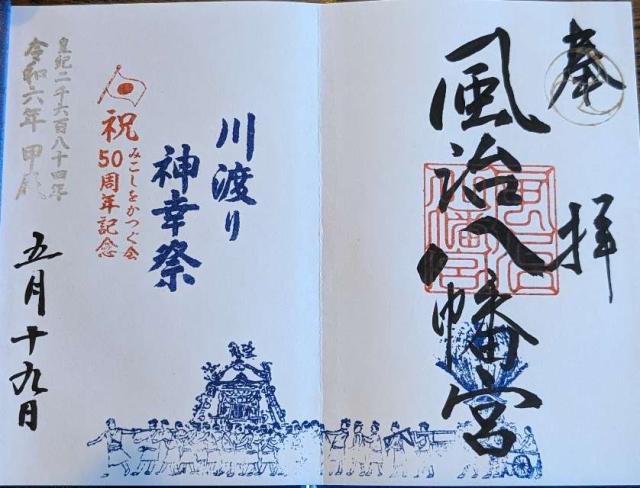 奉拝
風治八幡宮
川渡り
神幸祭
みこしをかつぐ会
祝
50周年記念
皇紀二千六百八十四年
令和六年 甲辰
五月十九日